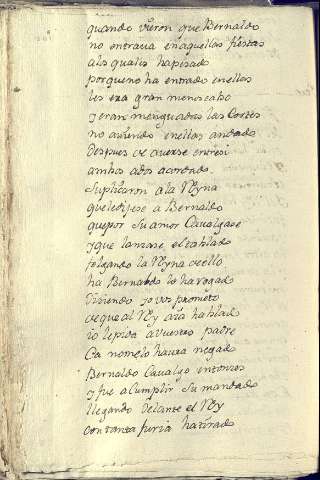 quando vieron que Bernaldo
no entraua en aquellas fiestas
a los quales ha pesado
porque no ha entrado en ellas
les era gran menoscabo
y eran menguadas las Cortes
no auiendo en ellas andado
despues de auerse entresi
ambos ados acordado.
Suplicaron a la Reyna
que le dijese a Bernaldo
que por Su amor Caualgase
y que lansase el tablado
folgando la Reyna de ello
ha Bernardo lo ha rogado
Diziendo yo vos prometo
de que al Rey aia hablado
io le pida a vuestro padre
Ca no me lo haura negado
Bernaldo Caualgo entonses
y fue a Cumplir Su mandado
llegando delante el Rey
con tanta furia ha tirado